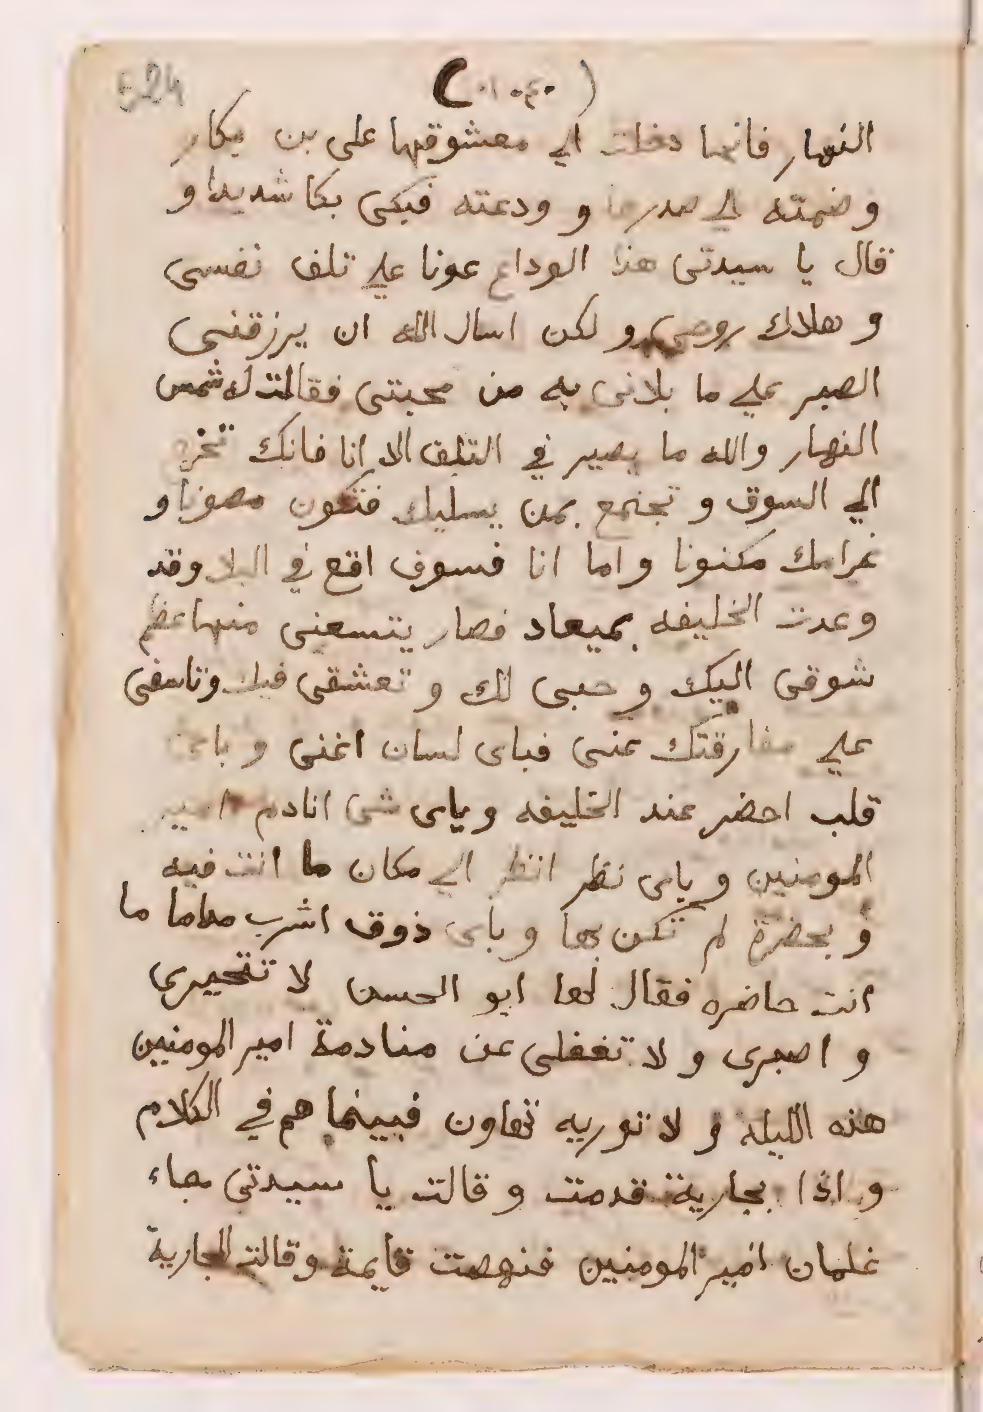 524
النهار فانها دخلت الي معشوقها على بن بكار
و ضمته الي صدرها و ودعته فبكى بكا شديدا و
قال يا سيدتى هذا الوداع عونا علي تلف نفسى
و هلاك روحى و لكن اسال الله ان يرزقنى
الصبر علي ما بلانى به من محبتى فقالت له شمس
النهار والله ما يصير في التلف الا انا فانك تخرج
الي السوق و تجتمع بمن يسليك فتكون مصونا و
غرامك مكنونا و اما انا فسوف اقع في البلا وقد
وعدت الخليفه بميعاد فصار يتسعنى منها عظم
شوقى اليك و حبى لك و تعشقى فيك وتاسفى
علي مفارقتك عنى فباى لسان اغنى و باى
قلب احضر عند الخليفه و باى شى انادم امير
المومنين و باى نظر انظر الي مكان ما انت فيه
و بحضرة لم تكن بها و باى ذوق اشرب مداما ما
انت حاضره فقال لها ابو الحسن لا تتحيرى
و اصبرى و لا تغفلى عن منادمة امير المومنين
هذه الليله و لا توريه تهاون فبينما هم في الكلام
و اذا بجارية قدمت و قالت يا سيدتى جاء
غلمان امير المومنين فنهضت قايمة وقالت للجارية